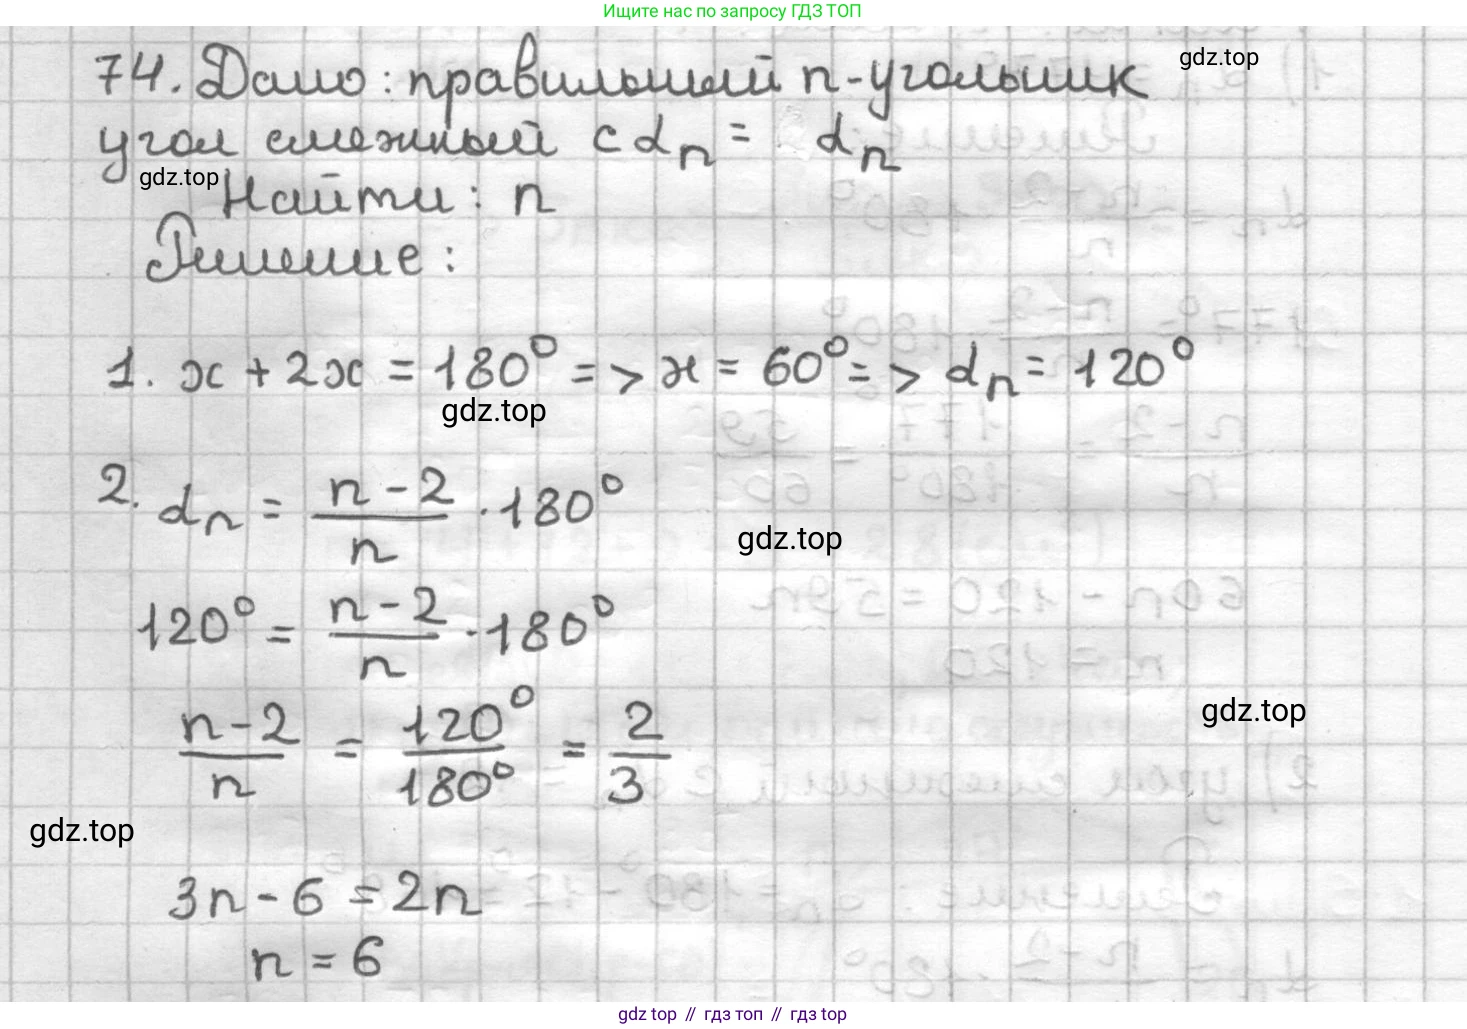 Ищите нас по запросу ГДЗ ТОП
gdz.top
74. Дано: правильный n-угольник
угол смежный с α_n = α_n
gdz.top
Найти: n
Решение:
1. x + 2x = 180° => x = 60° => α_n = 120°
gdz.top
2. α_n = (n-2)/n · 180°
gdz.top
120° = (n-2)/n · 180°
(n-2)/n = 120°/180° = 2/3
gdz.top
gdz.top
3n - 6 = 2n
n = 6
gdz top // гдз топ // gdz top